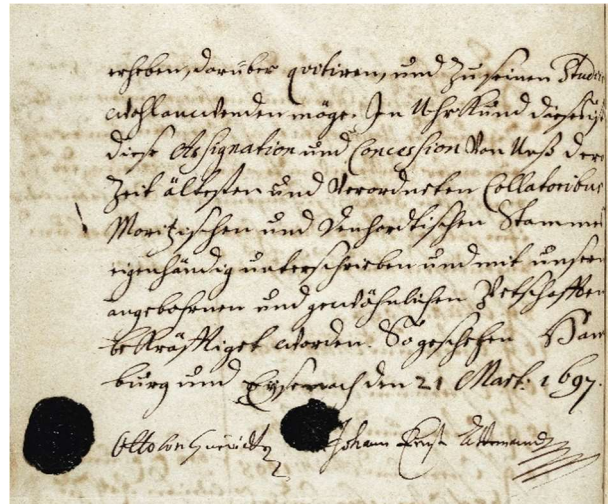 erheben, darüber qvitiren, und zu seinen Studiis
wohl anwenden möge. In Uhrkund dessen ist
diese Assignation und Concession von Unß der
Zeit ältesten und Verordneten Collatoribus
Moritzischen und Denhardtischen Stammes
eigenhändig unterschrieben und mit unsern
angebohrnen und gewöhnlichen Petschafften
bekräfftiget worden. So geschehen Ham
burg und Eysenach den 21 Mart. 1697.
Otto von Johann Ernst